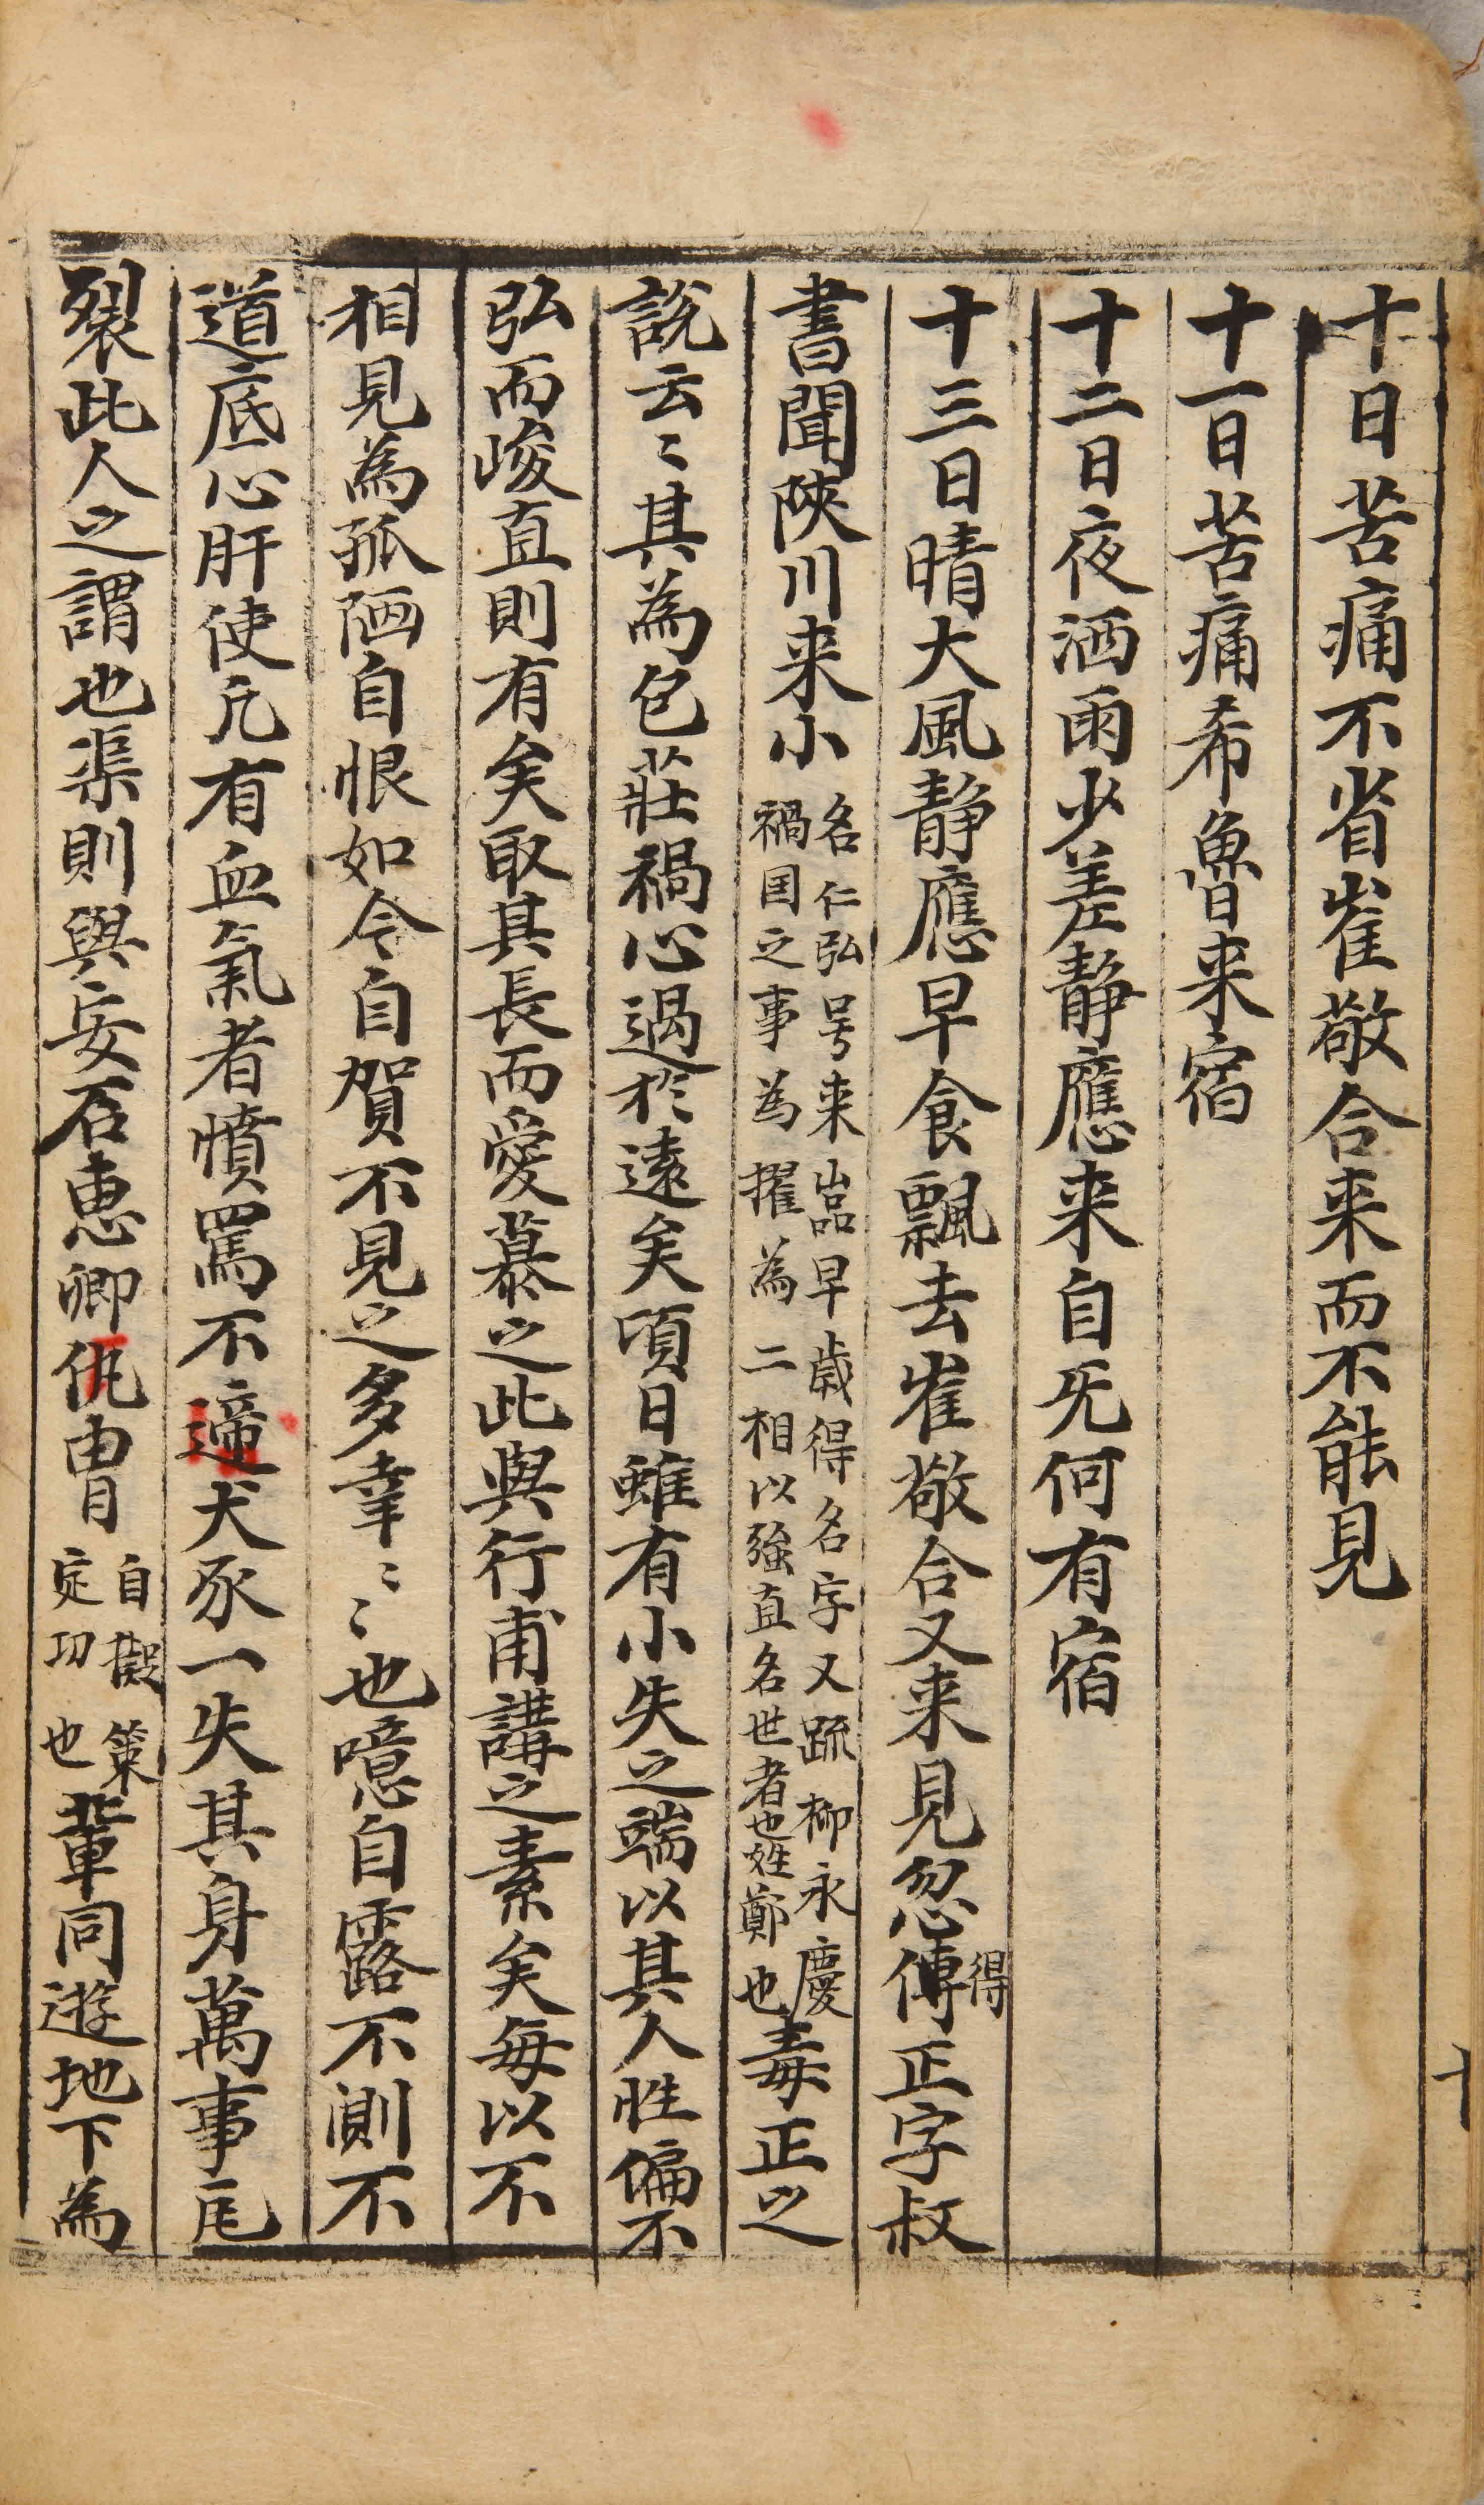 十日苦痛不省崔敬合来而不能見
十一日苦痛希魯来宿
十二日夜洒雨少差静應来自旡何有宿
十三日晴大風静應早食飄去崔敬合又来見忽傅得正字叔
書聞陜川来小名仁弘号来嵓早歳得名字又疏柳永慶禍国之事為擢為二相以強直名世者也姓鄭也毒正之
説云〻其為包莊禍心過於遠矣頃日雖有小失之端以其人性偏不
弘而峻直則有矣取其長而愛慕之此與行甫講之素矣每以不
相見為孤陋自恨如令自賀不見之多幸〻〻也噫自露不測不
道底心肝使凢有血氣者憤罵不啻犬豕一失其身萬事瓦
裂此人之謂也渠則與安石惠卿侂胄自擬策定功也輩同遊地下為
十